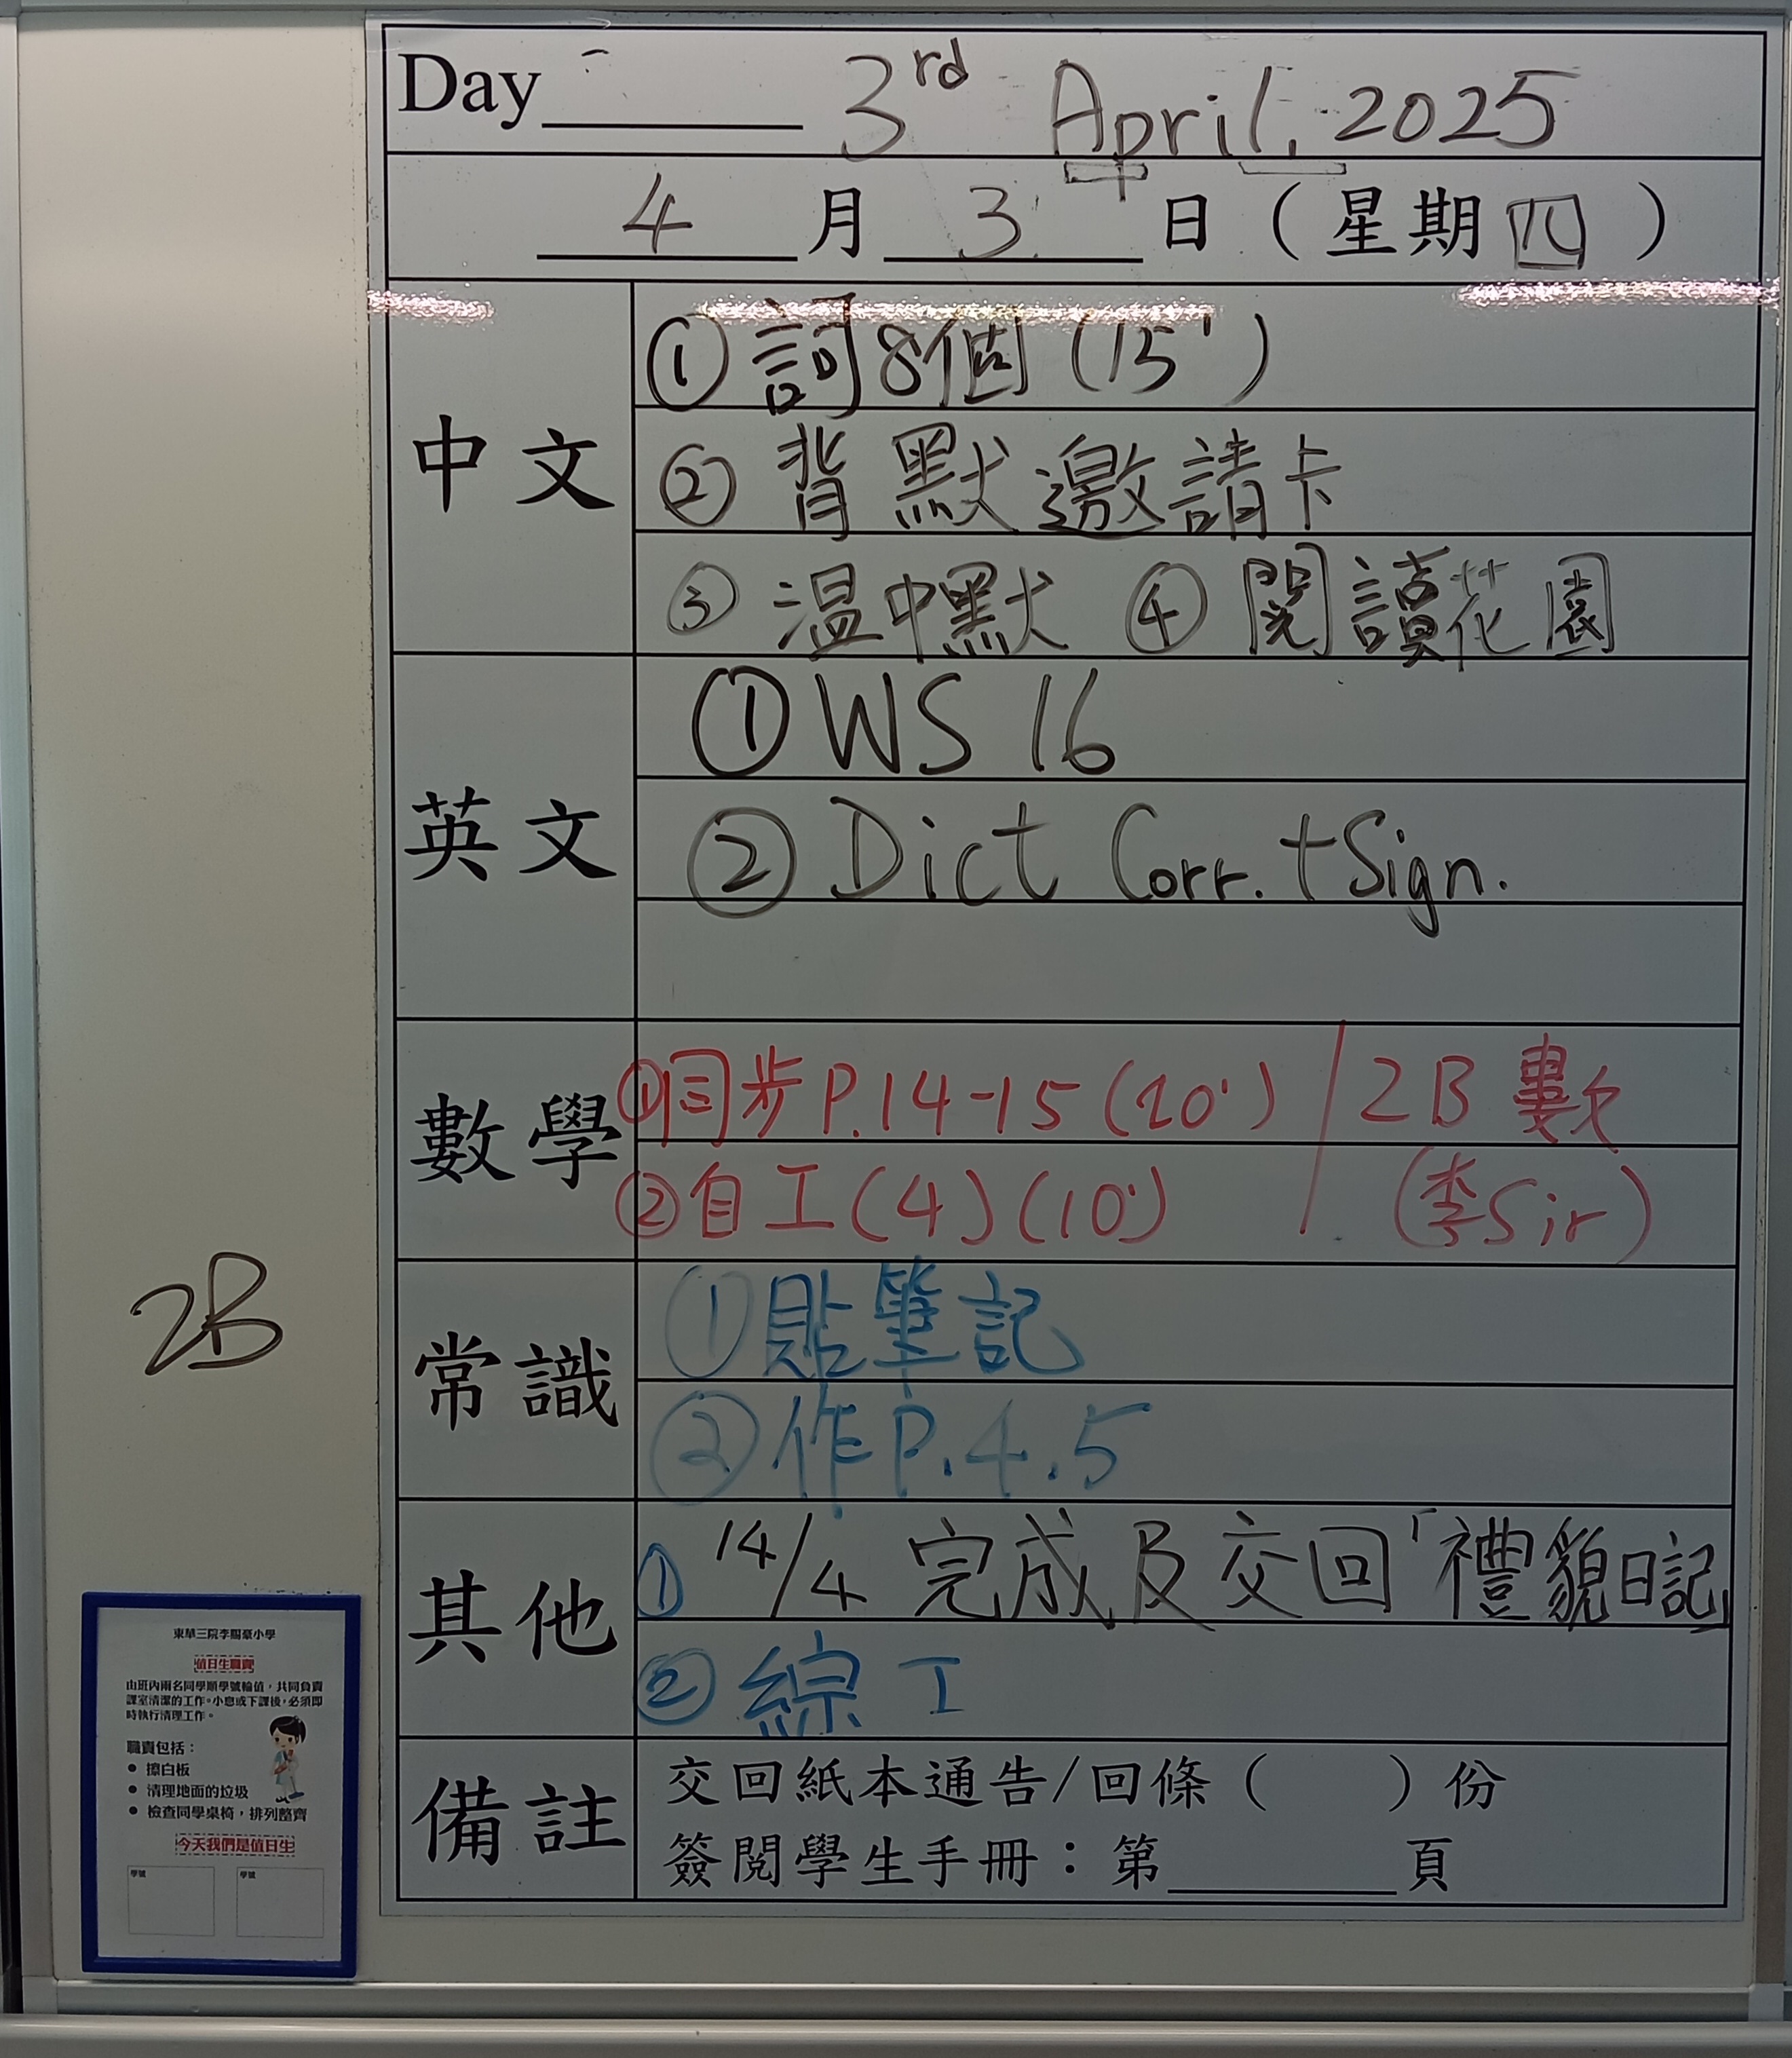 Day 3rd April, 2025
4 月 3 日（星期四）
中文
① 詞8個 (15')
② 背默邀請卡
③ 溫中默 ④ 閱讀花園
英文
① WS 16
② Dict Corr. + Sign.
數學
①同步P.14-15 (20') / 2B 數
②自工(4)(10') (李Sir)
常識
①貼筆記
②作P.4.5
其他
① 14/4 完成及交回「禮貌日記」
② 綜工
備註
交回紙本通告/回條（ ）份
簽閱學生手冊：第 頁
2B
東華三院李賜豪小學
值日生職責
由班內兩名同學順學號輪值，共同負責
課室清潔的工作。小息或下課後，必須即
時執行清理工作。
職責包括：
• 擦白板
• 清理地面的垃圾
• 檢查同學桌椅，排列整齊
今天我們是值日生
學號 學號